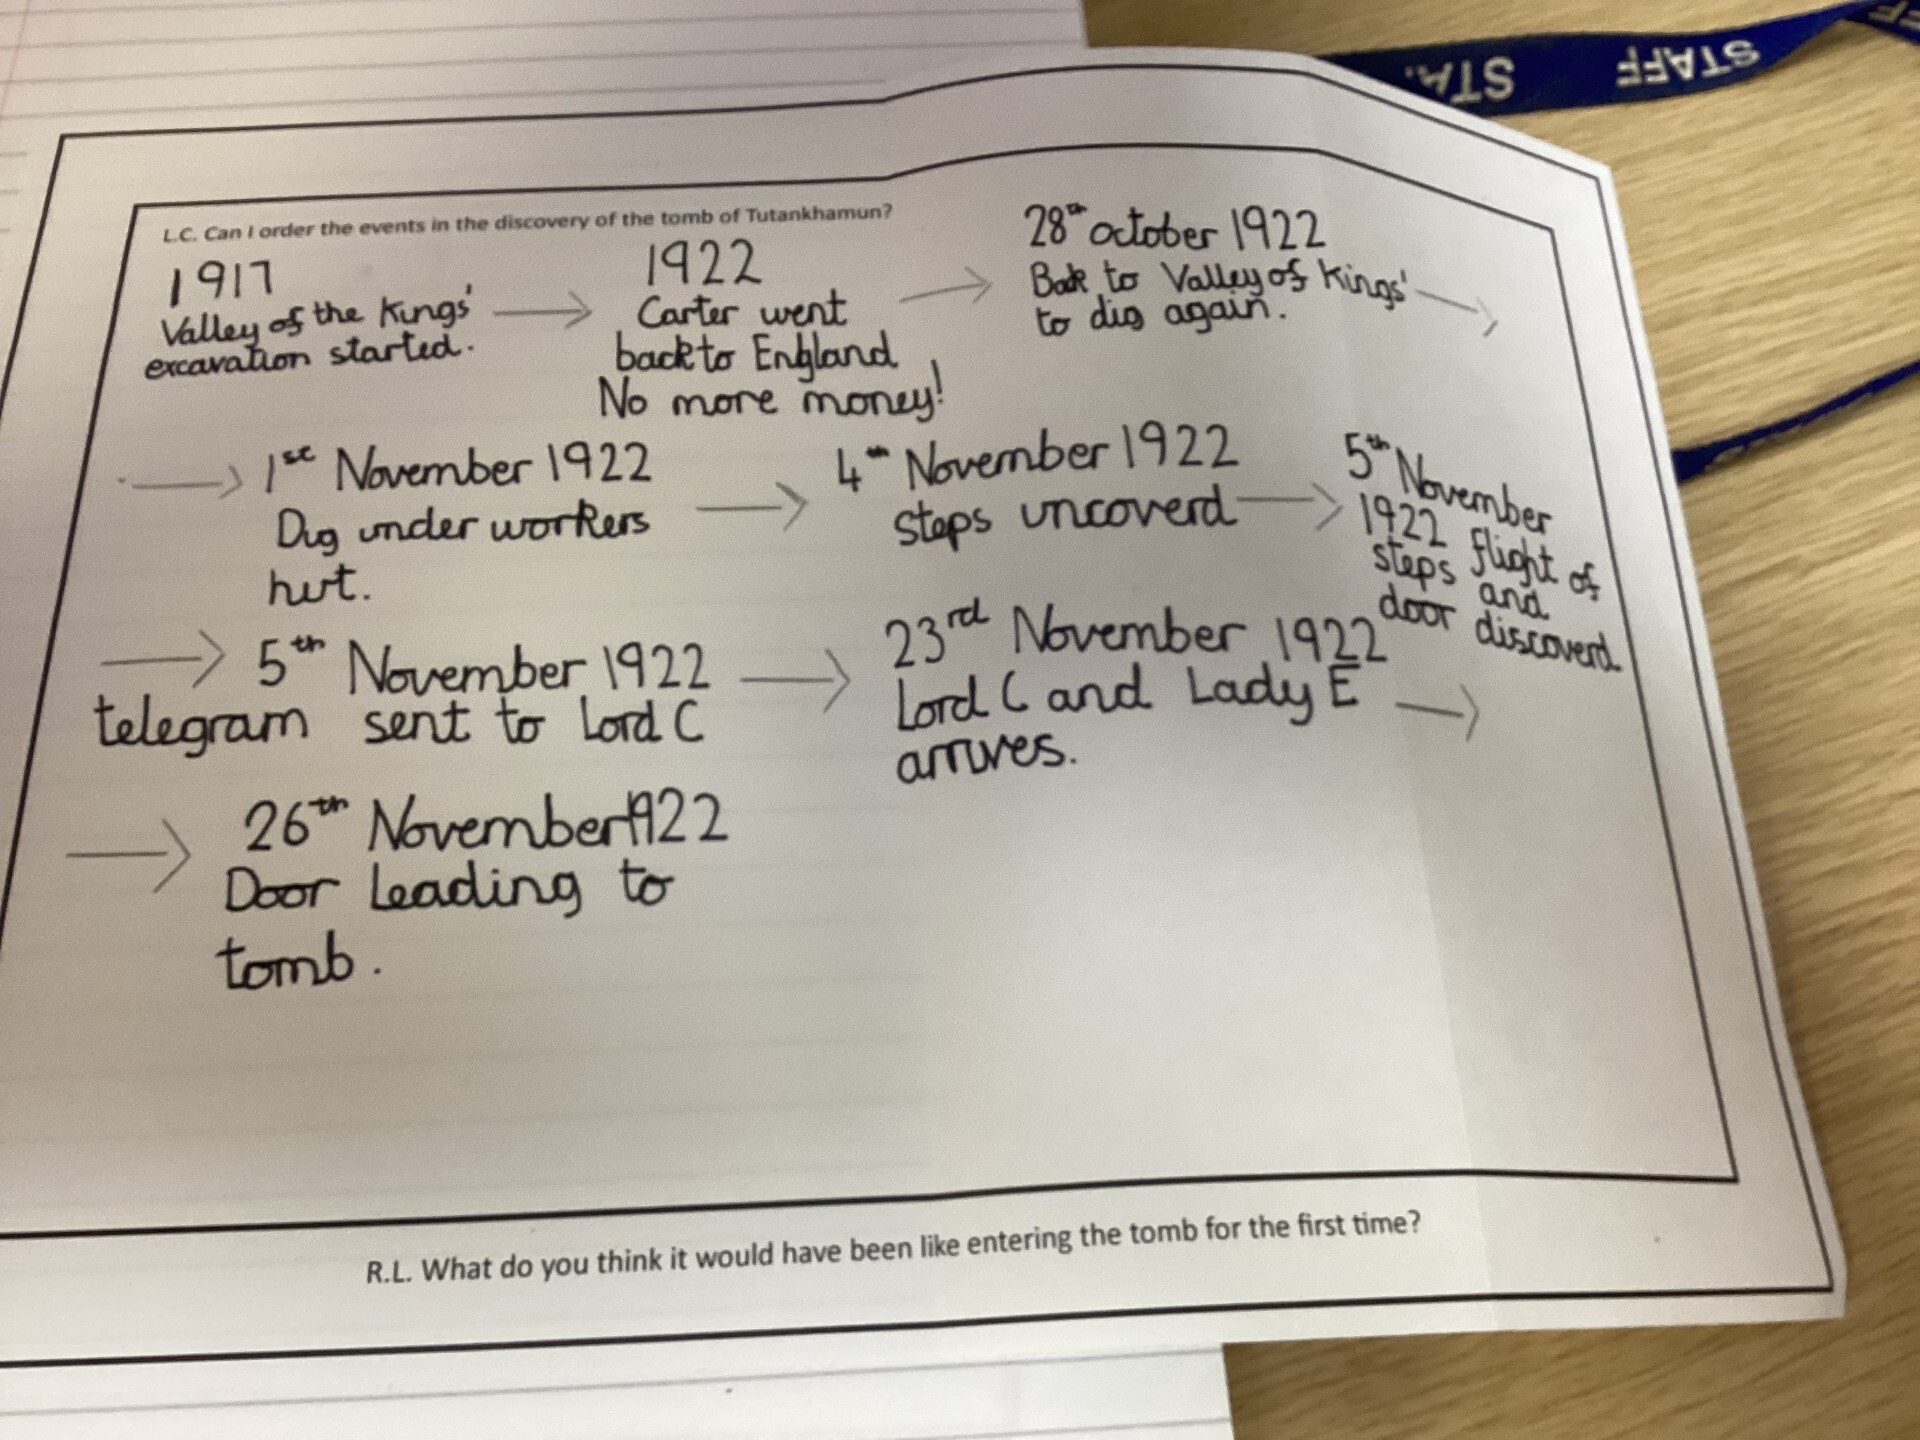 STAFF
STA
L.C. Can I order the events in the discovery of the tomb of Tutankhamun?
1917
Valley of the Kings'
excavation started.
1922
Carter went
back to England
No more money!
28th october 1922
Back to Valley of Kings'
to dig again.
1st November 1922
Dig under workers
hut.
4th November 1922
steps uncoverd
5th November
1922 flight of
steps and
door discoverd.
5th November 1922
telegram sent to Lord C
23rd November 1922
Lord C and Lady E
arrives.
26th November 1922
Door leading to
tomb.
R.L. What do you think it would have been like entering the tomb for the first time?